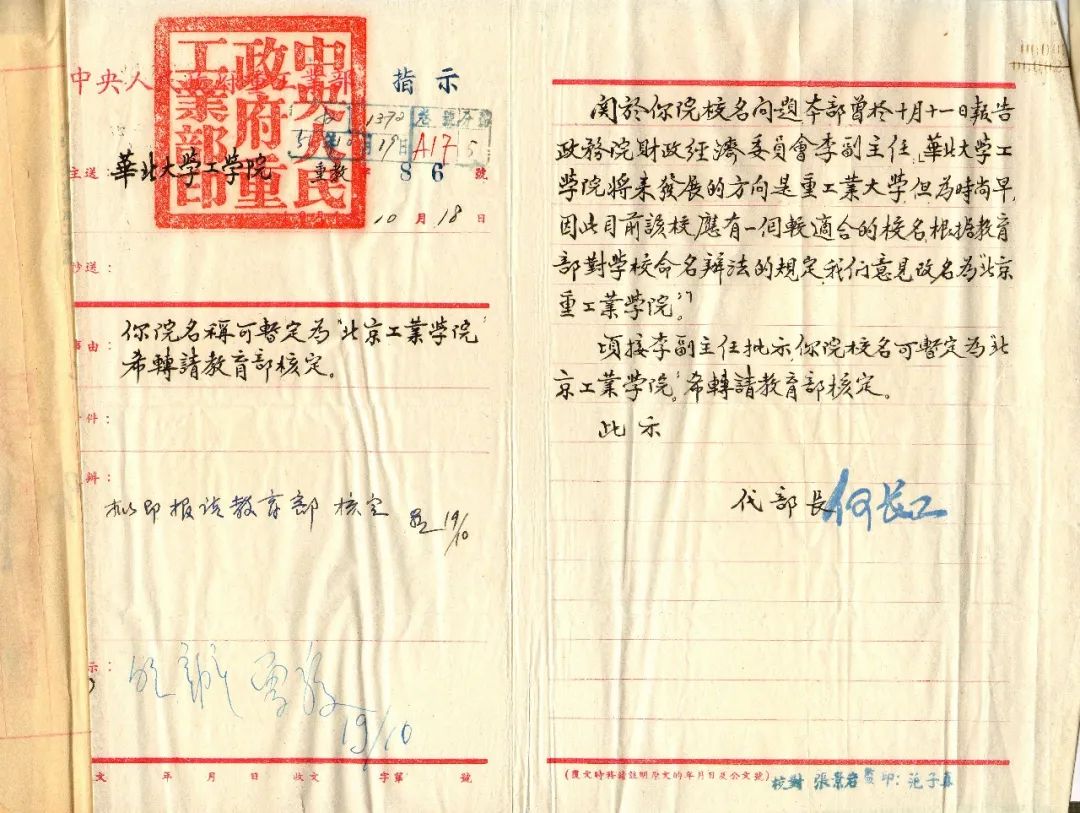 中央人民政府重工業部 指示
中央人民
政府重
工業部印
1372
卷號 分號
51年10月19日 A17 5
主送：華北大学工学院 重教字 86 號
1951年10月18日
抄送：
事由：你院名稱可暫定為“北京工業学院”
希轉請教育部核定。
附件：
擬辦：
拟即报请教育部核定 19/10
批示：
照辦 曾毅 19/10
文 年 月 日 收文 字第 號
関於你院校名问题本部曾於十月十一日報告
政務院財政經濟委員會李副主任，「華北大学工
学院将来發展的方向是重工業大学，但為時尚早，
因此目前該校應有一個較適合的校名，根据教育
部對学校命名辦法的規定，我们意見改名為“北京
重工業学院。”
頃接李副主任批示，你院校名可暫定為“北
京工業学院”。希轉請教育部核定。
此示
代部長 何长工
(覆文時務請註明原文的年月日及公文號)
核對 張景岩 監印：范子真